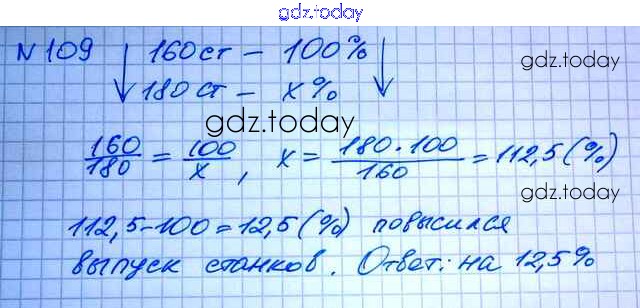 gdz.today
N 109 160ст - 100%
gdz.today
180ст - x%
gdz.today
160/180 = 100/x, x = 180·100/160 = 112,5(%)
gdz.today
112,5-100=12,5(%) повысился
выпуск станков. Ответ: на 12,5%